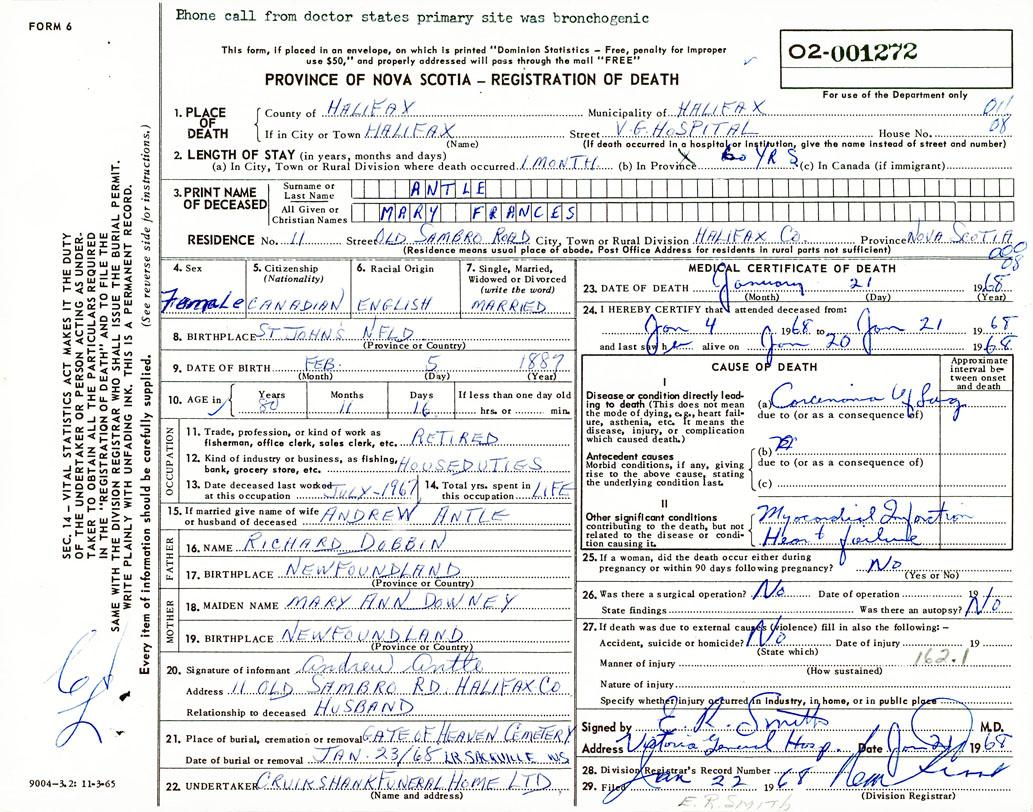 FORM 6
Phone call from doctor states primary site was bronchogenic
This form, if placed in an envelope, on which is printed "Dominion Statistics – Free, penalty for improper
use $50," and properly addressed will pass through the mail "FREE"
PROVINCE OF NOVA SCOTIA – REGISTRATION OF DEATH
02-001272
For use of the Department only
1. PLACE OF DEATH
County of HALIFAX Municipality of HALIFAX 011
If in City or Town HALIFAX Street V.G. HOSPITAL House No. 08
(Name) (If death occurred in a hospital or institution, give the name instead of street and number)
2. LENGTH OF STAY (in years, months and days)
(a) In City, Town or Rural Division where death occurred 1 MONTH (b) In Province 60 YRS (c) In Canada (if immigrant)
3. PRINT NAME OF DECEASED
Surname or Last Name ANTLE
All Given or Christian Names MARY FRANCES
RESIDENCE No. 11 Street OLD SAMBRO ROAD City, Town or Rural Division HALIFAX Co. Province NOVA SCOTIA
(Residence means usual place of abode. Post Office Address for residents in rural parts not sufficient)
000
08
4. Sex Female
5. Citizenship (Nationality) CANADIAN
6. Racial Origin ENGLISH
7. Single, Married, Widowed or Divorced (write the word) MARRIED
8. BIRTHPLACE ST JOHN'S NFLD
(Province or Country)
9. DATE OF BIRTH FEB. 5 1887
(Month) (Day) (Year)
10. AGE in Years 80 Months 11 Days 16 If less than one day old hrs. or min.
OCCUPATION
11. Trade, profession or kind of work as fisherman, office clerk, sales clerk, etc. RETIRED
12. Kind of industry or business, as fishing, bank, grocery store, etc. HOUSEDUTIES
13. Date deceased last worked at this occupation JULY-1967
14. Total yrs. spent in this occupation LIFE
15. If married give name of wife or husband of deceased ANDREW ANTLE
FATHER
16. NAME RICHARD DOBBIN
17. BIRTHPLACE NEWFOUNDLAND
(Province or Country)
MOTHER
18. MAIDEN NAME MARY ANN DOWNEY
19. BIRTHPLACE NEWFOUNDLAND
(Province or Country)
20. Signature of informant Andrew Antle
Address 11 OLD SAMBRO RD. HALIFAX CO
Relationship to deceased HUSBAND
21. Place of burial, cremation or removal GATE OF HEAVEN CEMETERY
Date of burial or removal JAN. 23/68 LR SACKVILLE NS
22. UNDERTAKER CRUIKSHANK FUNERAL HOME LTD
(Name and address)
MEDICAL CERTIFICATE OF DEATH
23. DATE OF DEATH January 21 1968
(Month) (Day) (Year)
24. I HEREBY CERTIFY that I attended deceased from:
Jan 4 1968 to Jan 21 1968
and last saw her alive on Jan 20 1968
CAUSE OF DEATH
Approximate interval between onset and death
I
Disease or condition directly leading to death (This does not mean the mode of dying, e.g., heart failure, asthenia, etc. It means the disease, injury, or complication which caused death.)
(a) Carcinoma of Lung
due to (or as a consequence of)
Antecedent causes
Morbid conditions, if any, giving rise to the above cause, stating the underlying condition last.
(b)
due to (or as a consequence of)
(c)
II
Other significant conditions contributing to the death, but not related to the disease or condition causing it.
Myocardial Infarction
Heart failure
25. If a woman, did the death occur either during pregnancy or within 90 days following pregnancy? No
(Yes or No)
26. Was there a surgical operation? No Date of operation 19
State findings Was there an autopsy? No
27. If death was due to external causes (violence) fill in also the following:–
Accident, suicide or homicide? No Date of injury 19
(State which)
162.1
Manner of injury
(How sustained)
Nature of injury
Specify whether injury occurred in Industry, in home, or in public place
Signed by E. R. Smith M.D.
Address Victoria General Hosp. Date Jan 21 1968
28. Division Registrar's Record Number
29. Filed Jan 22 1968
(Division Registrar)
E.R. SMITH
SEC. 14 – VITAL STATISTICS ACT MAKES IT THE DUTY
OF THE UNDERTAKER OR PERSON ACTING AS UNDER-
TAKER TO OBTAIN ALL THE PARTICULARS REQUIRED
IN THE "REGISTRATION OF DEATH" AND TO FILE THE
SAME WITH THE DIVISION REGISTRAR WHO SHALL ISSUE THE BURIAL PERMIT.
WRITE PLAINLY WITH UNFADING INK. THIS IS A PERMANENT RECORD.
Every item of information should be carefully supplied. (See reverse side for instructions.)
9004–3.2: 11-3-65